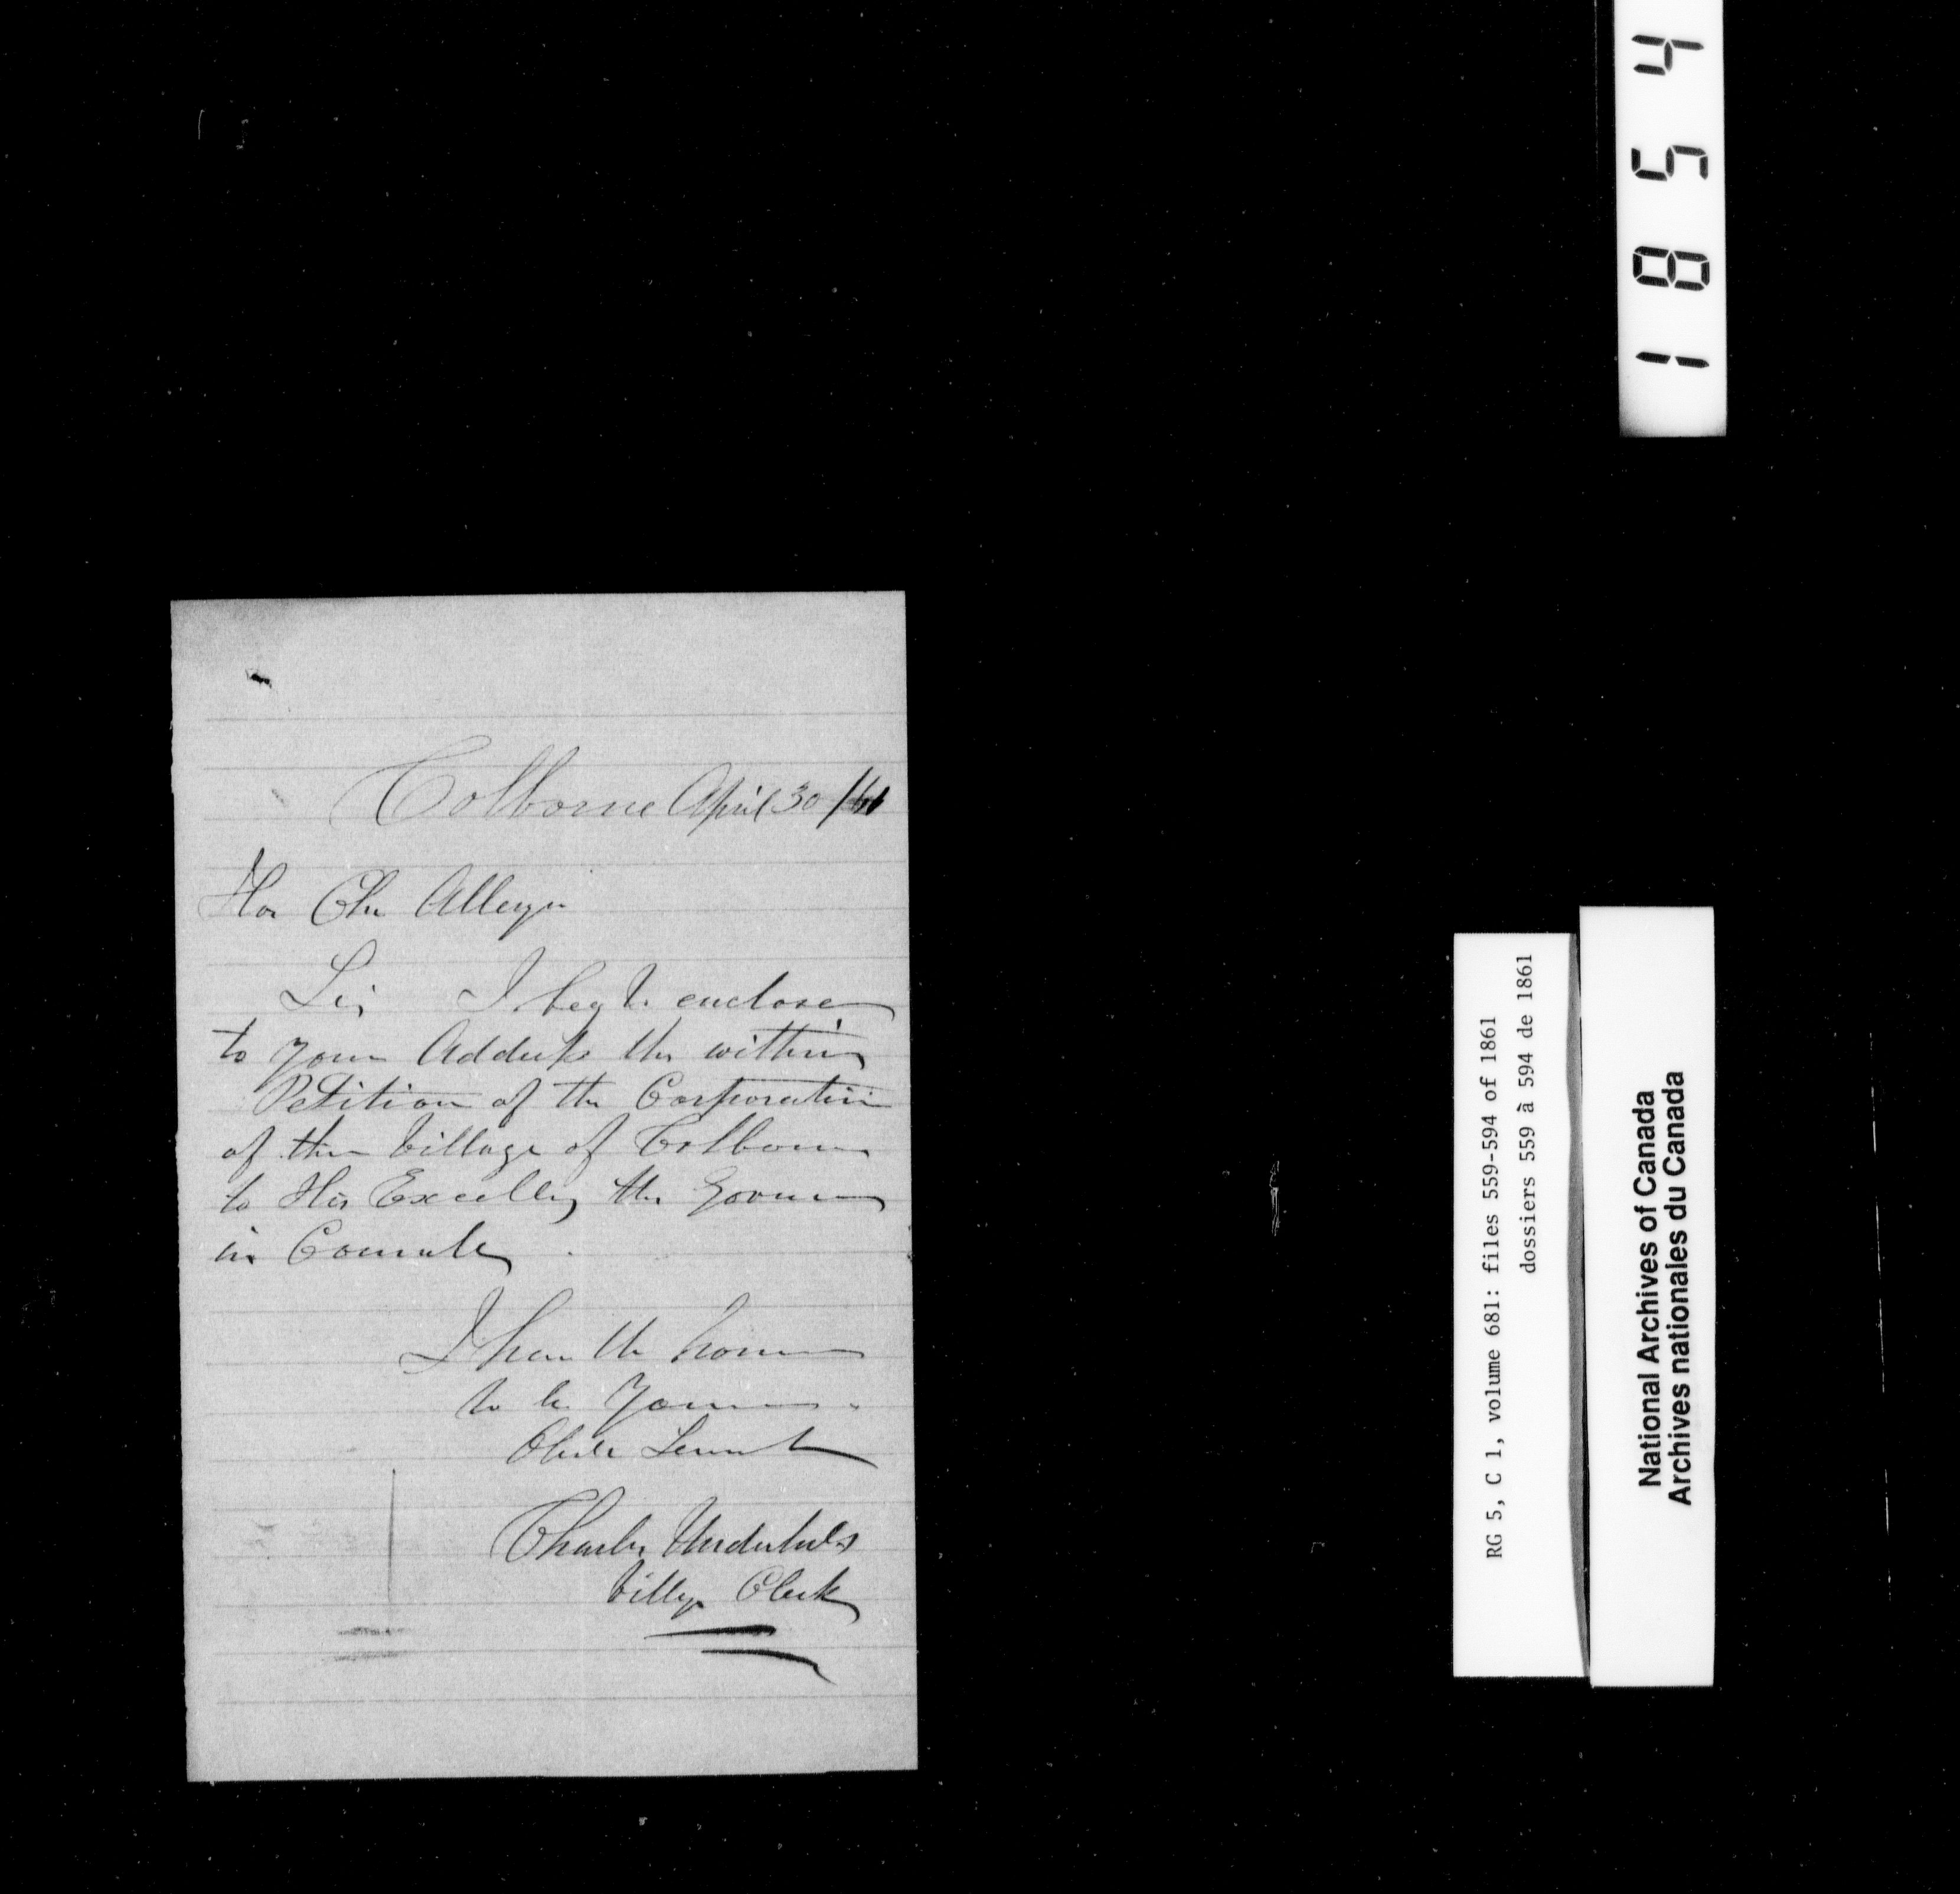 Colborne April 30 /61
Hon Chs Alleyn
Sir I beg to enclose
to your Address the within
Petition of the Corporation
of the Village of Colborne
to His Excellcy the Governor
in Council
I have the honor
to be Your
Obdt Servant
Charles Underhill
Village Clerk
1854
RG 5, C 1, volume 681: files 559-594 of 1861
dossiers 559 à 594 de 1861
National Archives of Canada
Archives nationales du Canada